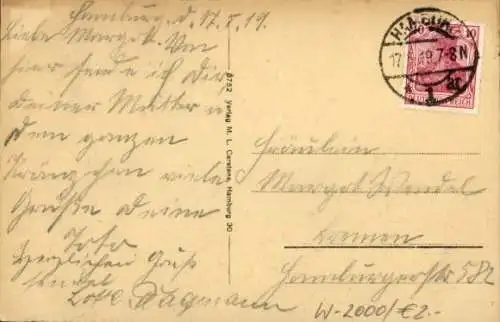 Hamburg, d. 17.5.19.
Liebe Margot. Von
hier sende ich Dir,
Deiner Mutter u.
dem ganzen
Kränzchen viele
Grüße Deine
Toto
Herzlichen Gruß
sendet
Lotte Dagmann
6752 Verlag M. L. Carstens, Hamburg 30
HAMBURG
17 19.7-8N
1
10
REICH
Fräulein
Margot Wendel
Bremen
Hamburgerstr. 58
W-2000/€2.-